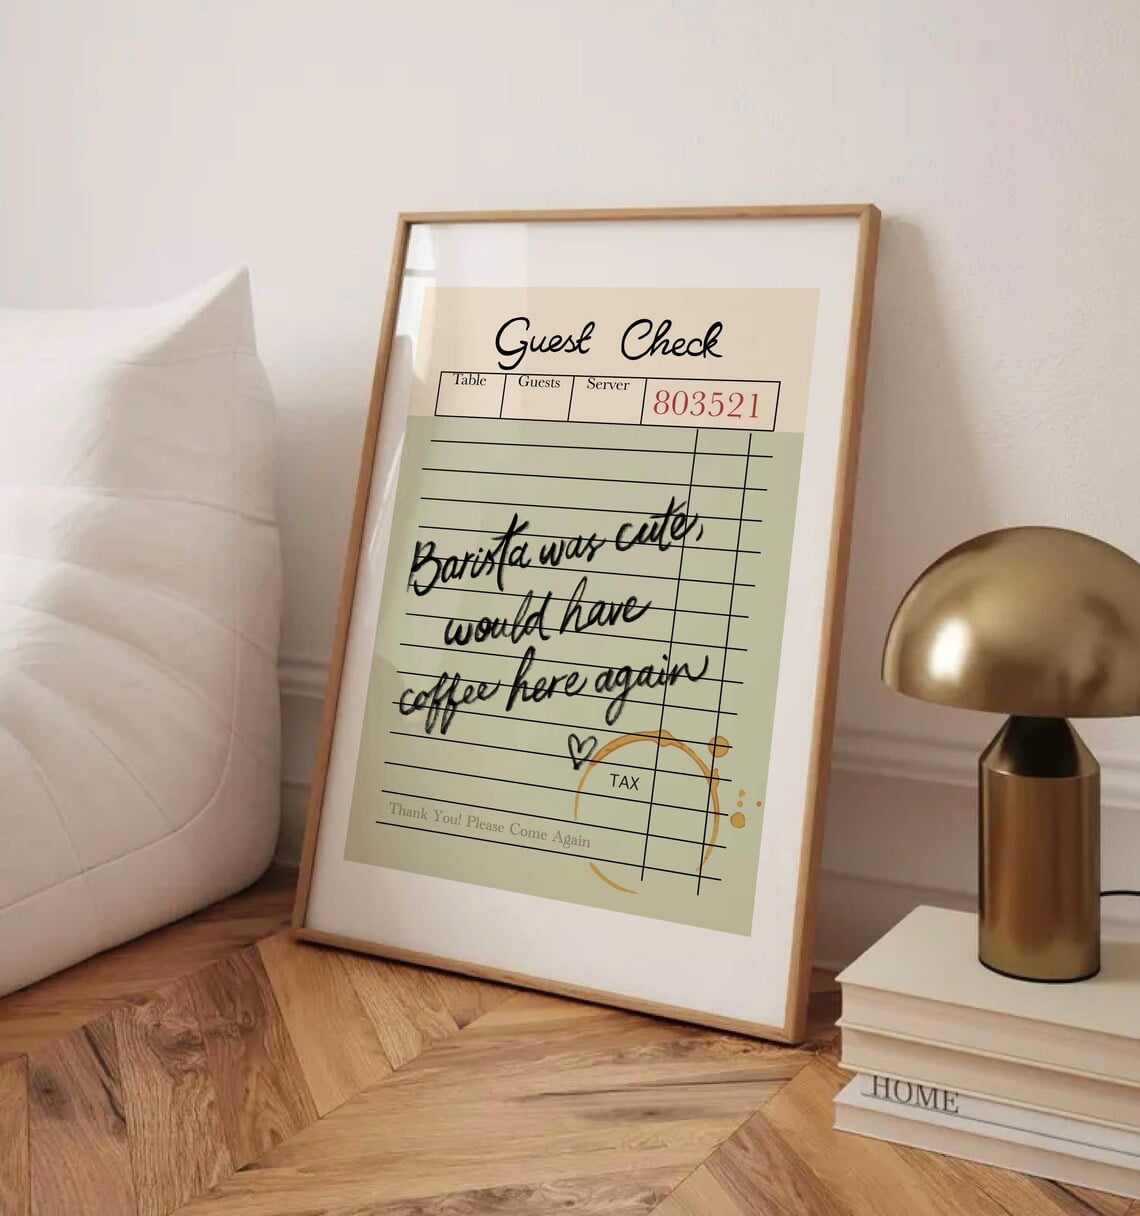 Guest Check
Table Guests Server 803521
Barista was cute,
would have
coffee here again
TAX
Thank You! Please Come Again
HOME